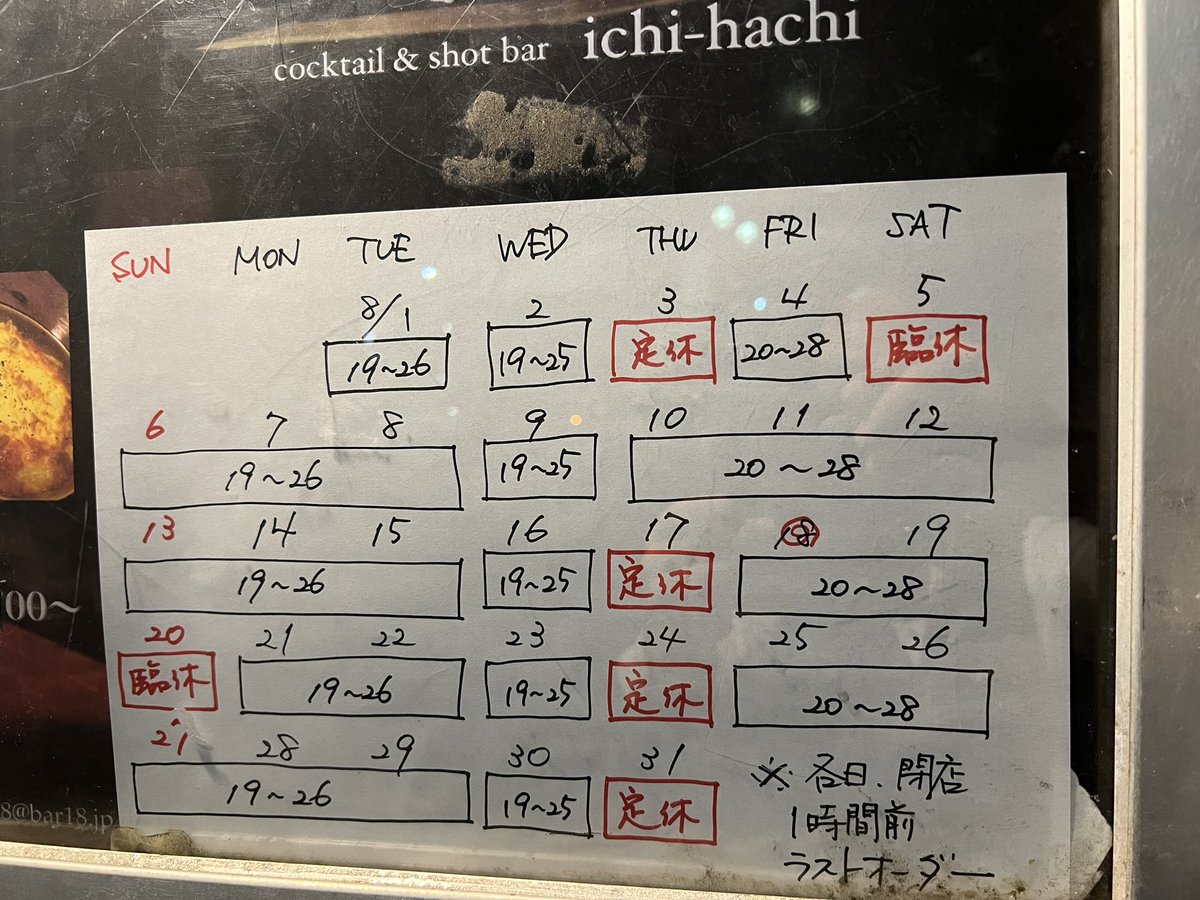 cocktail & shot bar ichi-hachi
SUN MON TUE WED THU FRI SAT
8/1 2 3 4 5
19~26 19~25 定休 20~28 臨休
6 7 8 9 10 11 12
19~26 19~25 20~28
13 14 15 16 17 18 19
19~26 19~25 定休 20~28
00~
20 21 22 23 24 25 26
臨休 19~26 19~25 定休 20~28
27 28 29 30 31
19~26 19~25 定休
※ 各日、閉店
1時間前
ラストオーダー
8@bar18.jp